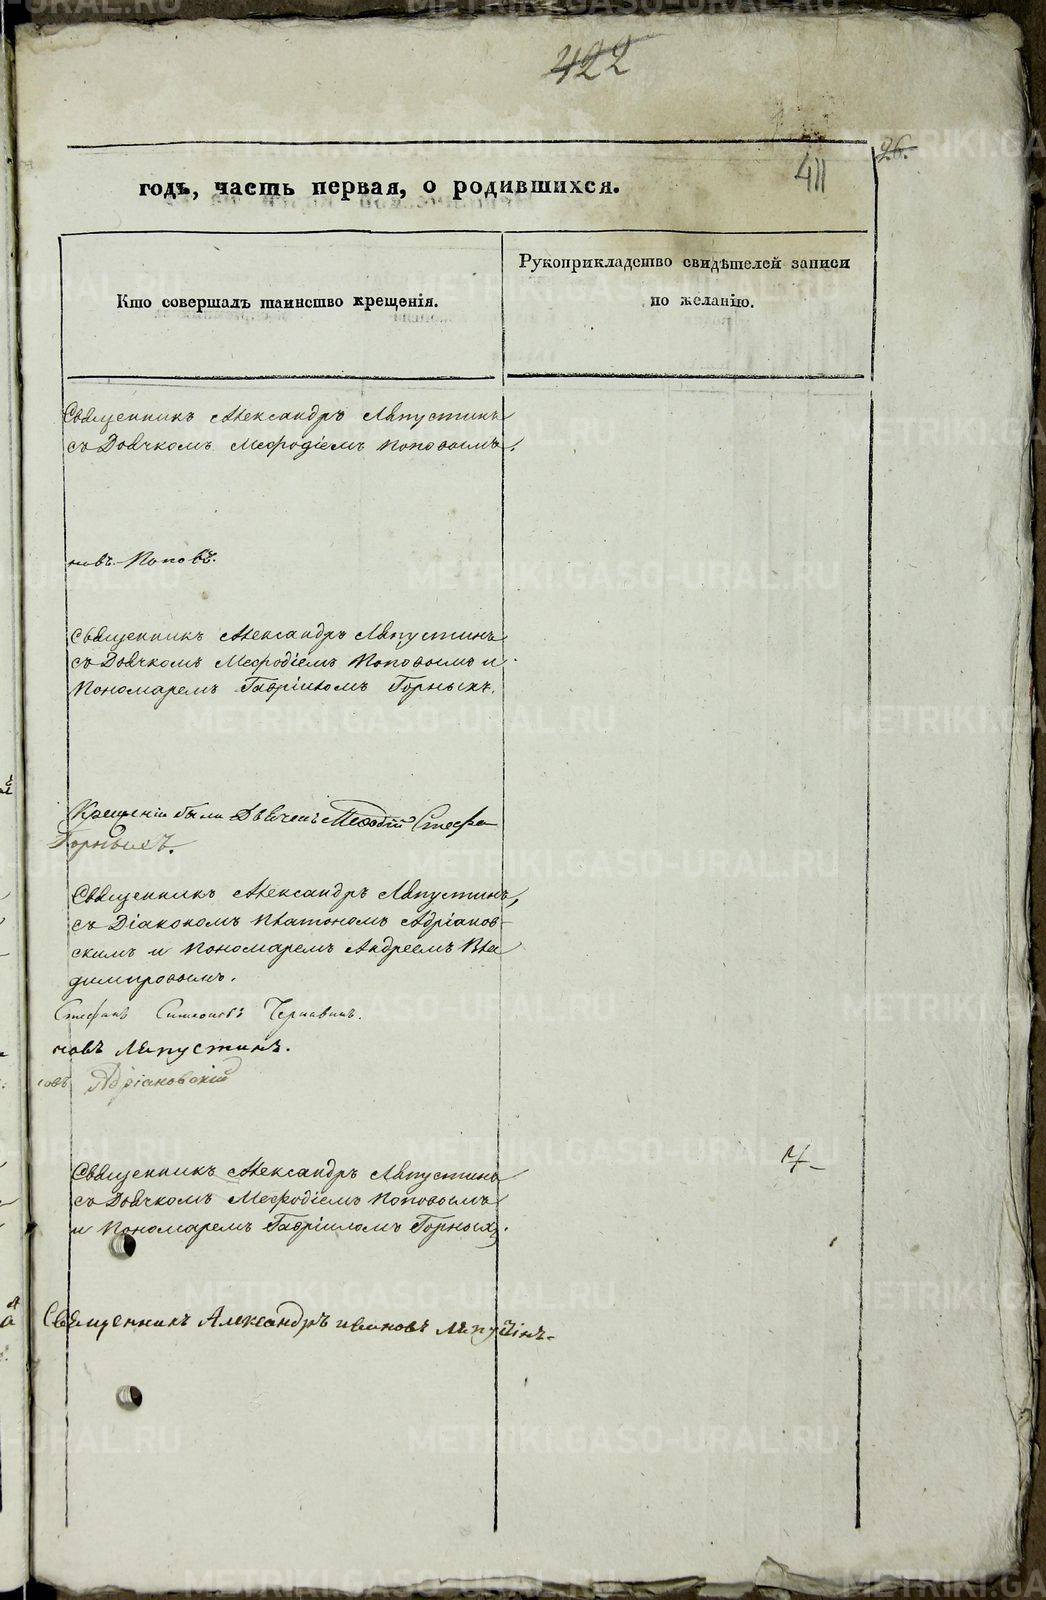 422
411
26.
годъ, часть первая, о родившихся.
Кто совершалъ таинство крещенія.
Рукоприкладство свидѣтелей записи
по желанію.
Священникъ Александръ Ляпустинъ
съ Дьячкомъ Меѳодіемъ Поповымъ.
новъ Поповъ.
Священникъ Александръ Ляпустинъ
съ Дьячкомъ Меѳодіемъ Поповымъ и
Пономаремъ Гавріиломъ Горныхъ.
Крещеніи были Дьячекъ Меѳодій Стефа
Горныхъ.
Священникъ Александръ Ляпустинъ,
съ Діакономъ Платономъ Адріанов-
скимъ и Пономаремъ Андреемъ Вла
димировымъ.
Стефанъ Симеоновъ Чернавинъ.
новъ Ляпустинъ.
новъ Адріановскій
Священникъ Александръ Ляпустинъ
съ Дьячкомъ Меѳодіемъ Поповымъ
и Пономаремъ Гавріиломъ Горныхъ.
Священникъ Александръ Ивановъ Ляпустинъ.
METRIKI.GASO-URAL.RU